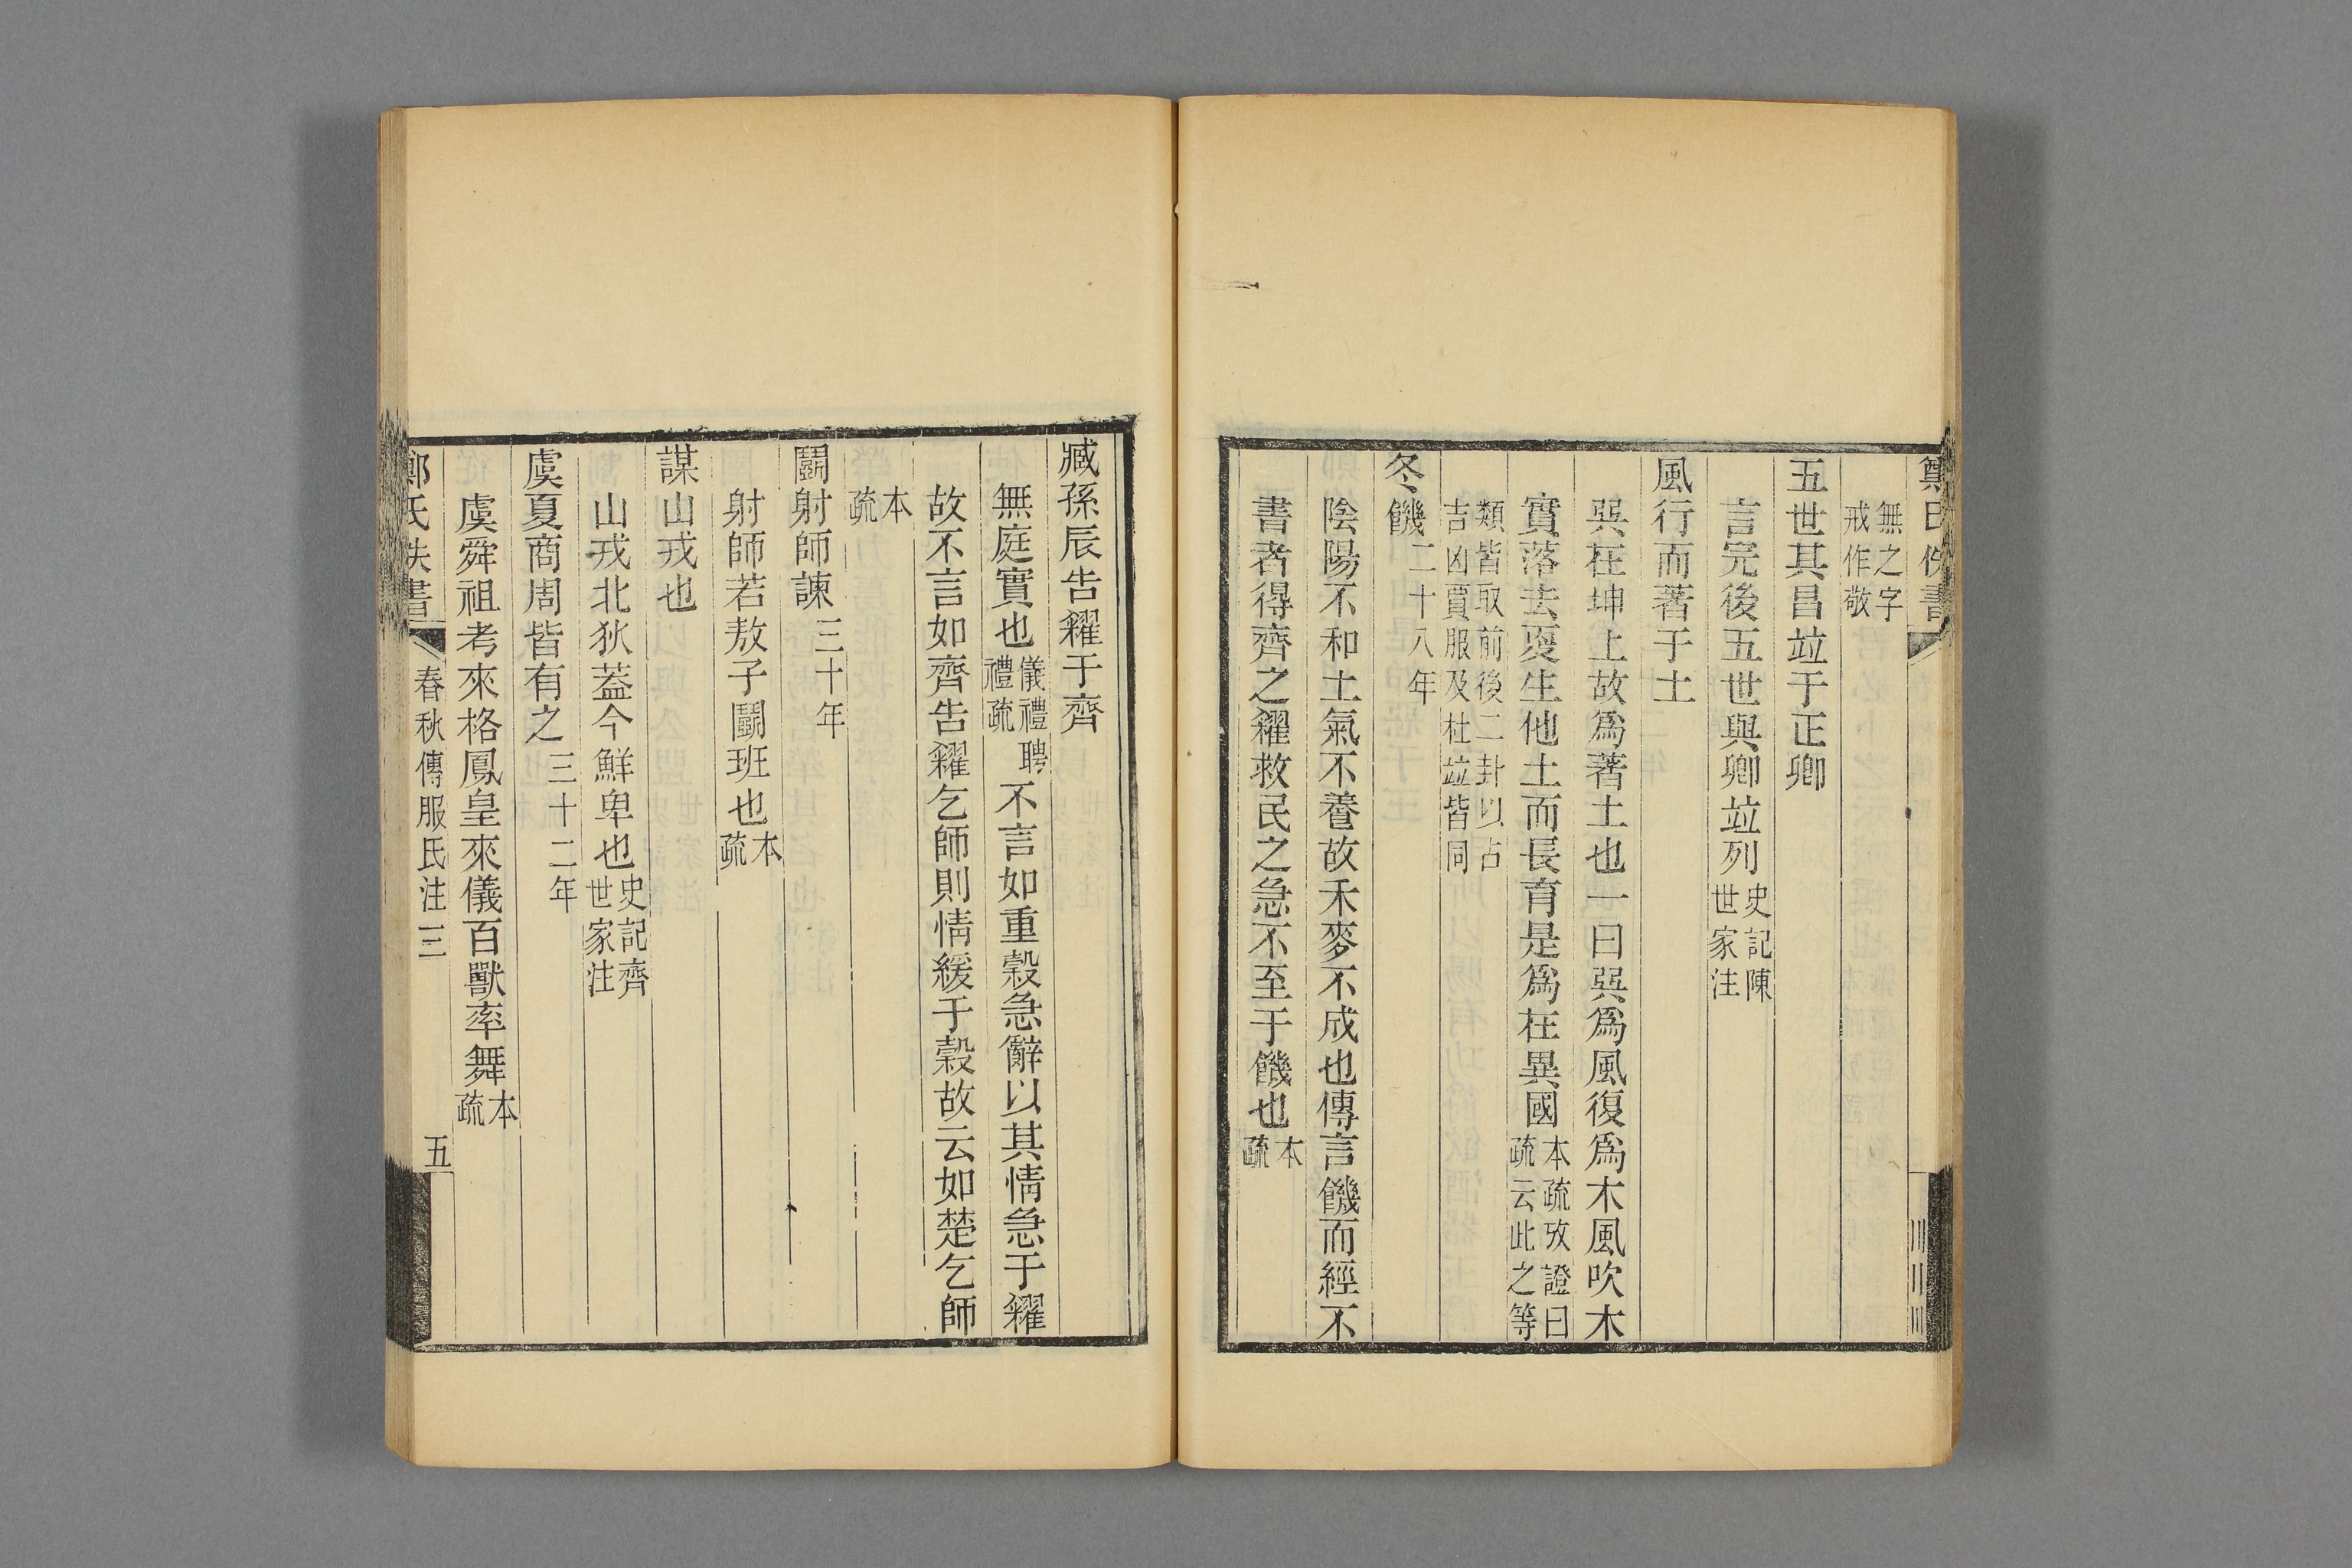 鄭氏佚書
無之字
戒作敬
五世其昌竝于正卿
言完後五世與卿竝列史記陳
世家注
風行而著于土
巽在坤上故爲著土也一曰巽爲風復爲木風吹木
實落去更生他土而長育是爲在異國本疏攷證曰
疏云此之等
類皆取前後二卦以占
吉凶賈服及杜竝皆同
冬饑二十八年
陰陽不和土氣不養故禾麥不成也傳言饑而經不
書者得齊之糴救民之急不至于饑也本
疏
臧孫辰告糴于齊
無庭實也儀禮聘
禮疏不言如重穀急辭以其情急于糴
故不言如齊告糴乞師則情緩于穀故云如楚乞師
本
疏
鬭射師諫三十年
射師若敖子鬭班也本
疏
謀山戎也
山戎北狄葢今鮮卑也史記齊
世家注
虞夏商周皆有之三十二年
虞舜祖考來格鳳皇來儀百獸率舞本
疏
鄭氏佚書 春秋傳服氏注三 五